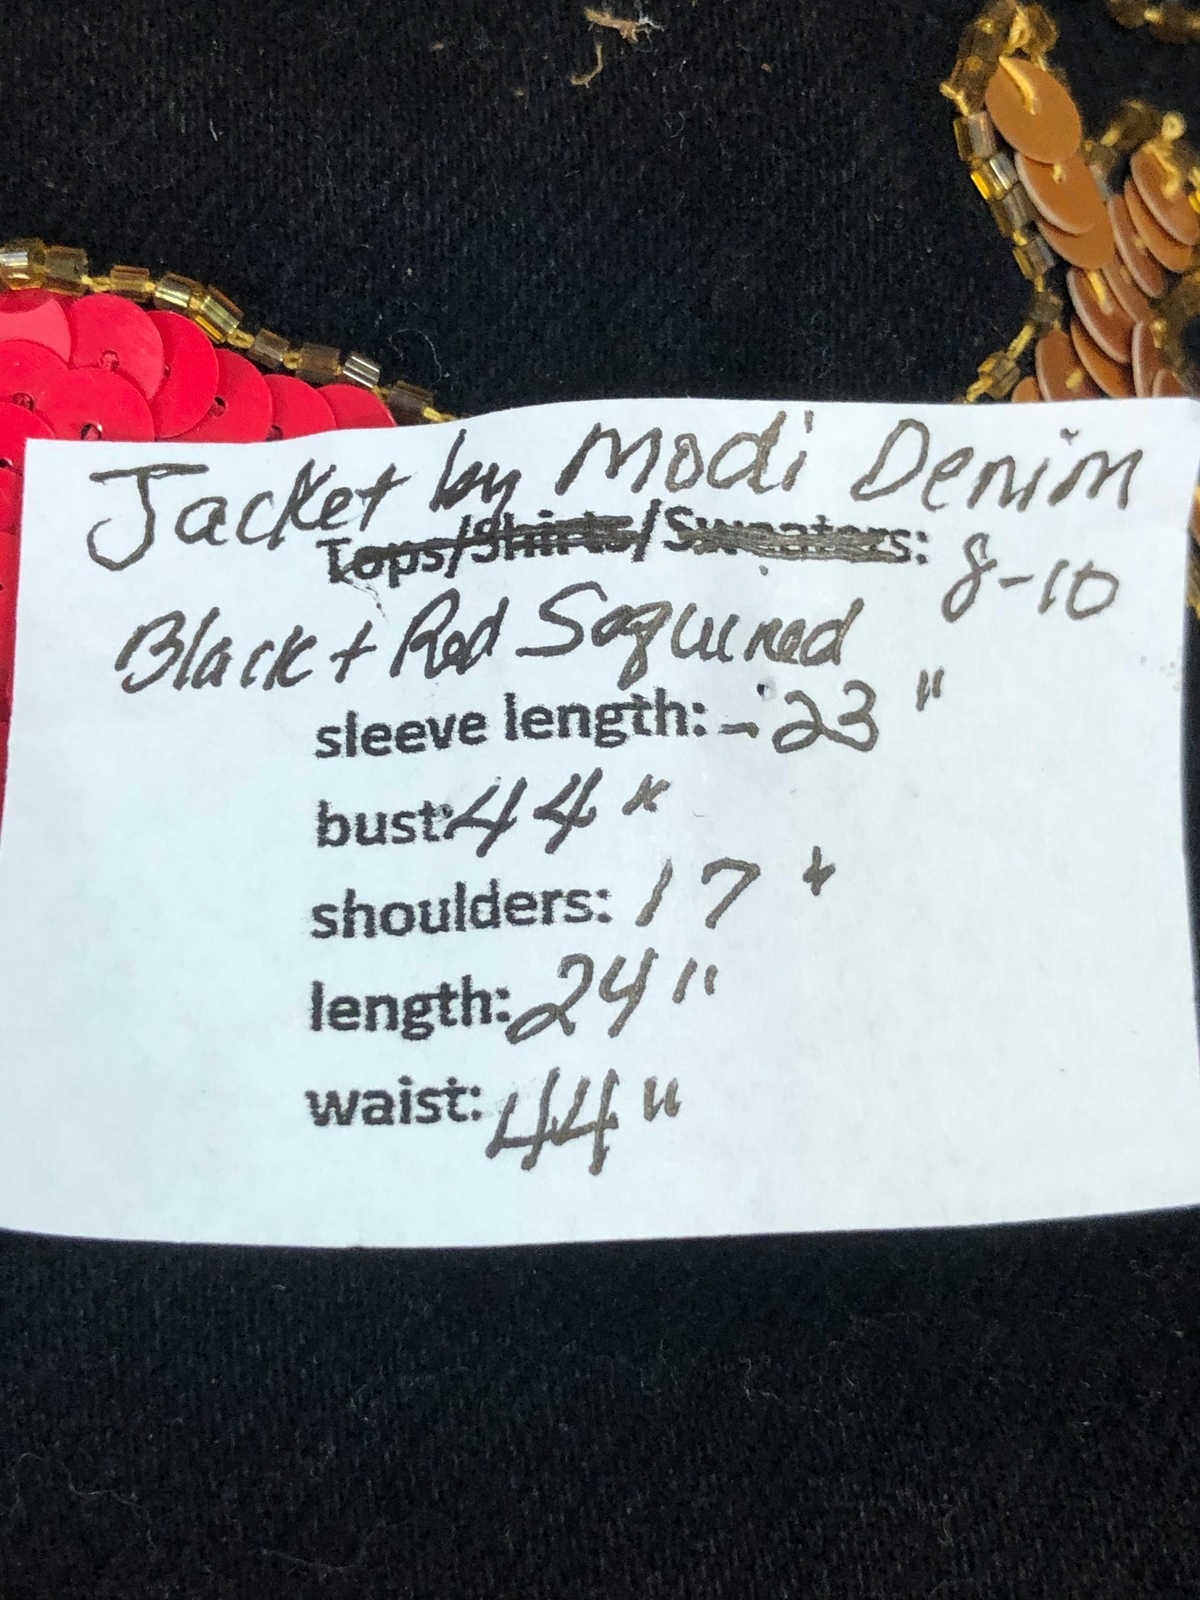 Jacket by Modi Denim
Tops/Shirts/Sweaters: 8-10
Black + Red Sequined
sleeve length: - 23"
bust: 44"
shoulders: 17"
length: 24"
waist: 44"